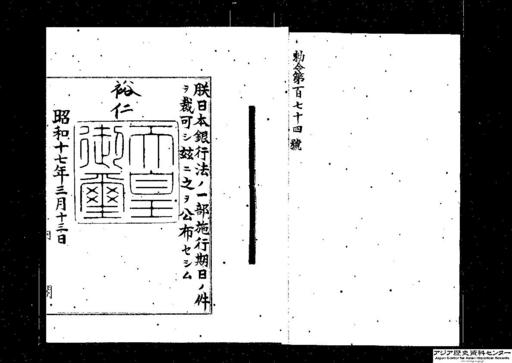 勅令第百七十四號
朕日本銀行法ノ一部施行期日ノ件
ヲ裁可シ茲ニ之ヲ公布セシム
裕仁
天皇
御璽
昭和十七年三月十三日
内閣
アジア歴史資料センター
Japan Center for Asian Historical Records